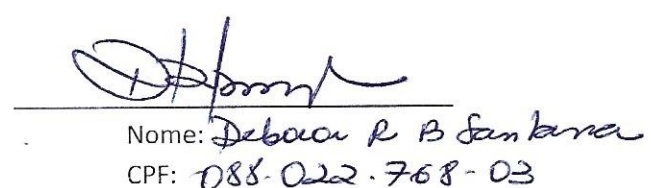 Nome: Debora R B Santana
CPF: 088.022.768-03